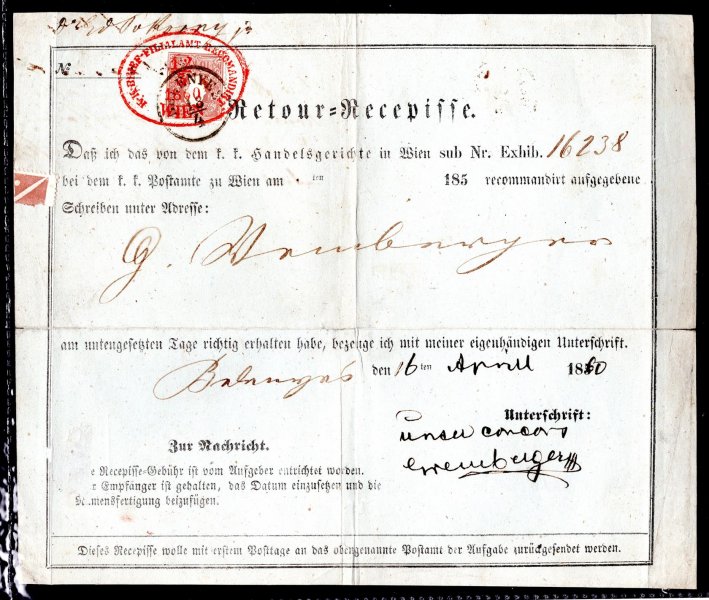 №
Retour-Recepisse.
Daß ich das von dem k. k. Handelsgerichte in Wien sub Nr. Exhib. 16238
bei dem k. k. Postamte zu Wien am ten 185 recommandirt aufgegebene
Schreiben unter Adresse:
G. Weinberger
am untengesetzten Tage richtig erhalten habe, bezeuge ich mit meiner eigenhändigen Unterschrift.
Belenyes den 16 ten April 1860
Unterschrift:
Weinberger
Zur Nachricht.
e Recepisse-Gebühr ist vom Aufgeber entrichtet worden.
r Empfänger ist gehalten, das Datum einzusetzen und die
mensfertigung beizufügen.
Dieses Recepisse wolle mit erstem Posttage an das obengenannte Postamt der Aufgabe zurückgesendet werden.